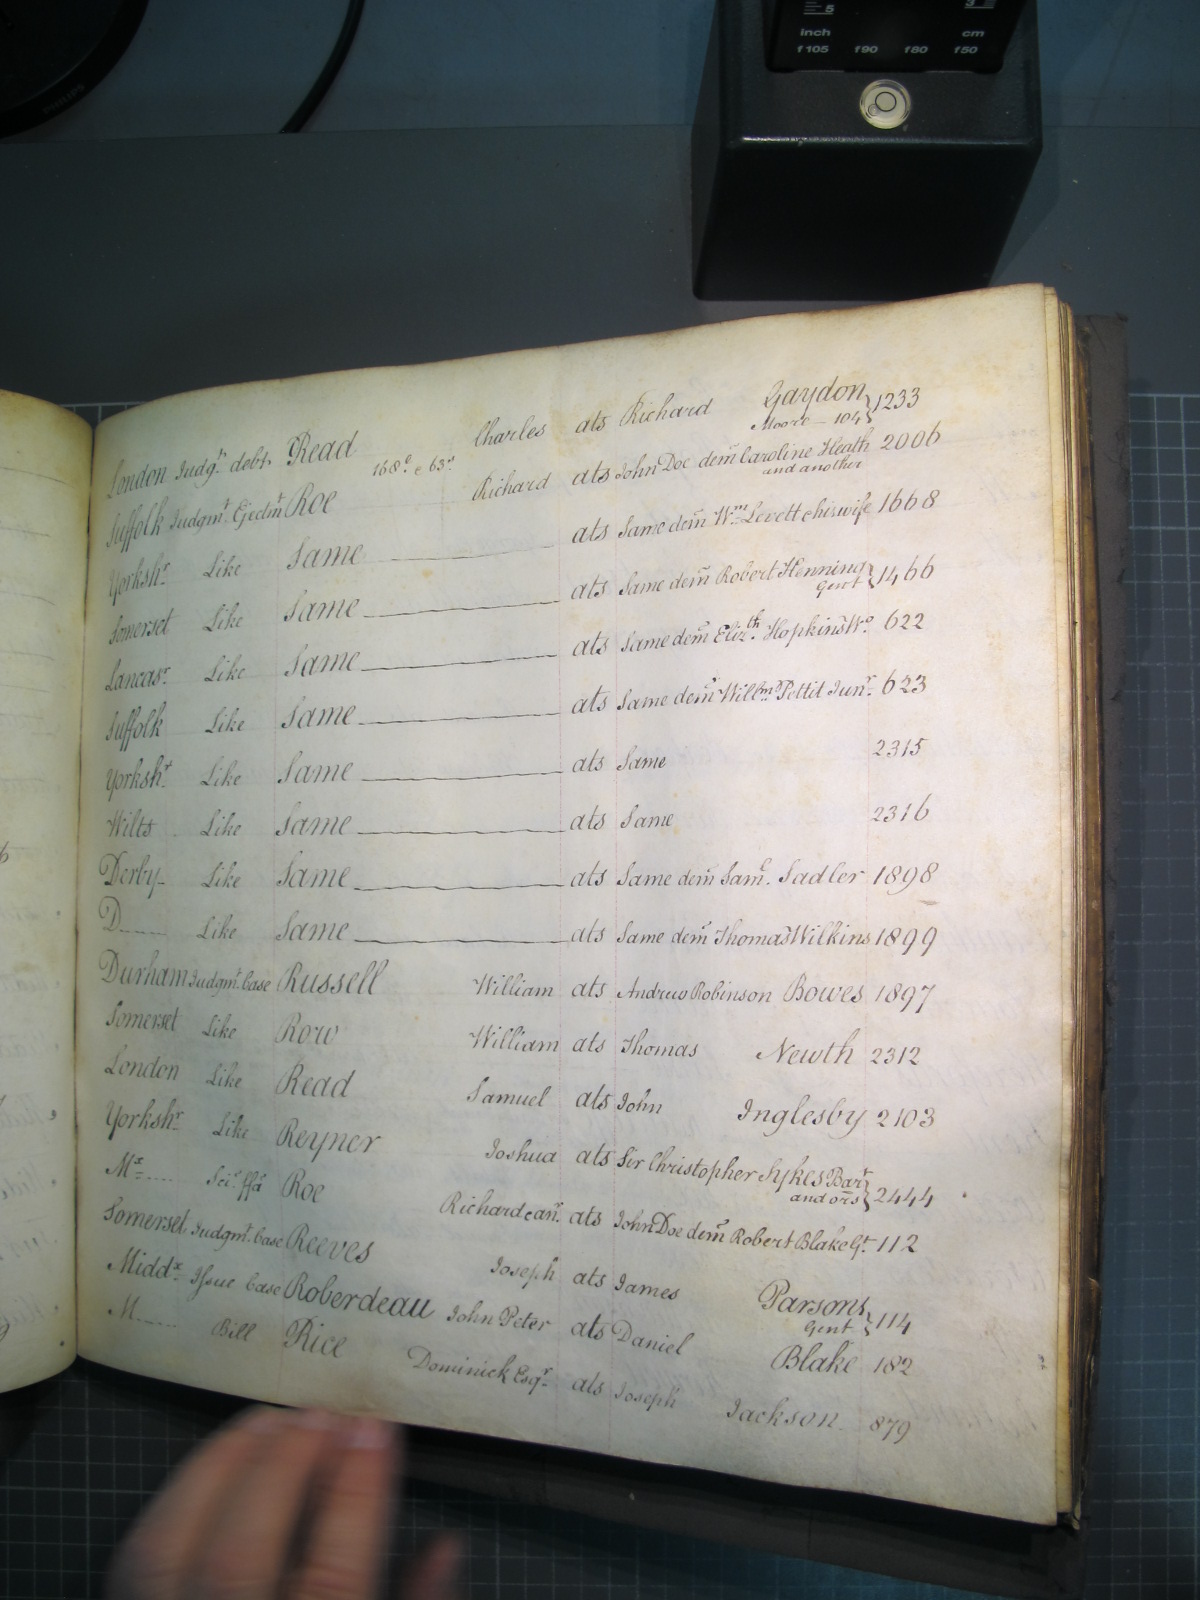 5
inch cm
f105 f90 f80 f50
PHILIPS
London Judgt. debt Read Charles ats Richard Gaydon 1233
168s. & 63s. Moore — 104
Suffolk Judgmt. Ejectmt Roe Richard ats John Doe dem Caroline Heath 2006
and another
Yorkshr. Like Same ats Same dem Wm. Levett & his wife 1668
Somerset Like Same ats Same dem Robert Henning 1466
Gent
Lancasr. Like Same ats Same dem Elizth. Hopkins Wo. 622
Suffolk Like Same ats Same dem Willm. Pettit Junr. 623
Yorkshr. Like Same ats Same 2315
Wilts Like Same ats Same 2316
Derby Like Same ats Same dem Saml. Sadler 1898
D Like Same ats Same dem Thomas Wilkins 1899
Durham Judgmt. Case Russell William ats Andrew Robinson Bowes 1897
Somerset Like Row William ats Thomas Newth 2312
London Like Read Samuel ats John Inglesby 2103
Yorkshr. Like Reyner Joshua ats Sir Christopher Sykes Bart 2444
and ors
Mx. Sci. ffa Roe Richard & anr. ats John Doe dem Robert Blake Gt. 112
Somerset Judgmt. Case Reeves Joseph ats James Parsons 114
Gent
Middx. Issue Case Roberdeau John Peter ats Daniel Blake 182
M Bill Rice Dominick Esqr. ats Joseph Jackson 879